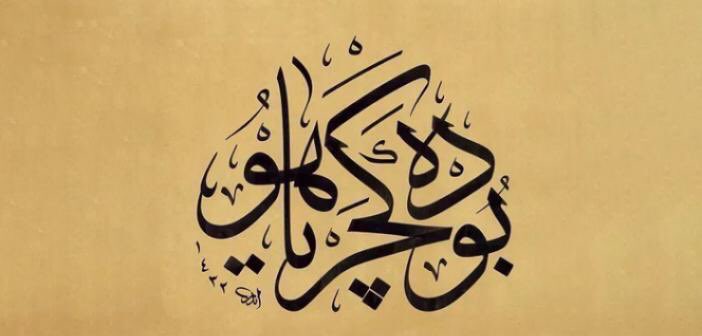 بو ده كچر يا هو
١٤٢٢